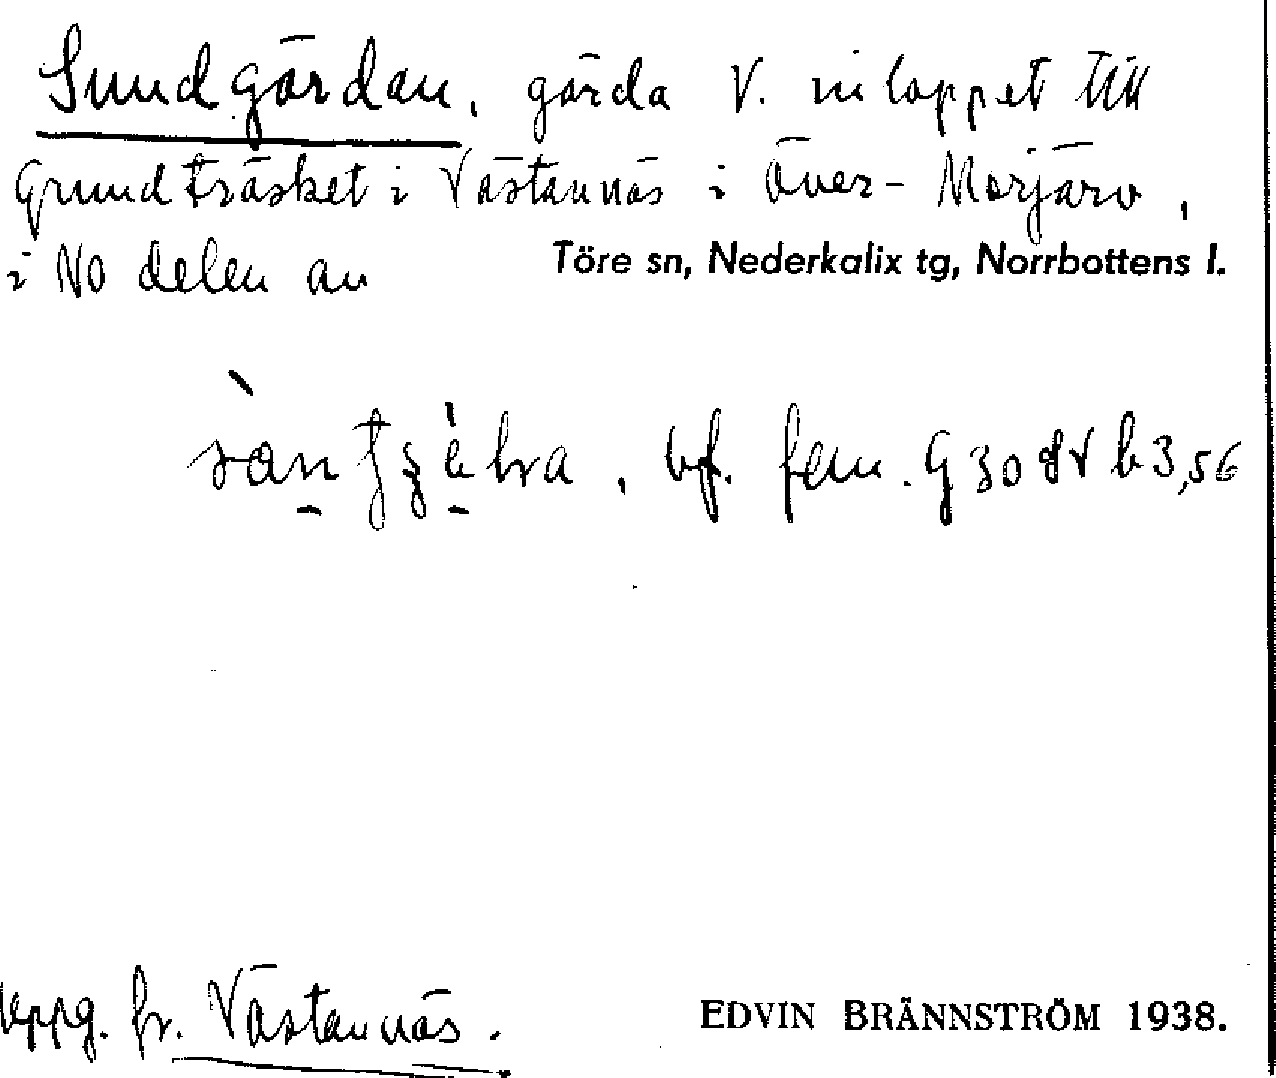 Sundgärdan, gärda V. inloppet till
Grundträsket i Västannäs i Över-Morjärv,
i NO delen av Töre sn, Nederkalix tg, Norrbottens l.
, bf. fem. G 30 SV b 3,56
Uppg. fr. Västannäs.
EDVIN BRÄNNSTRÖM 1938.